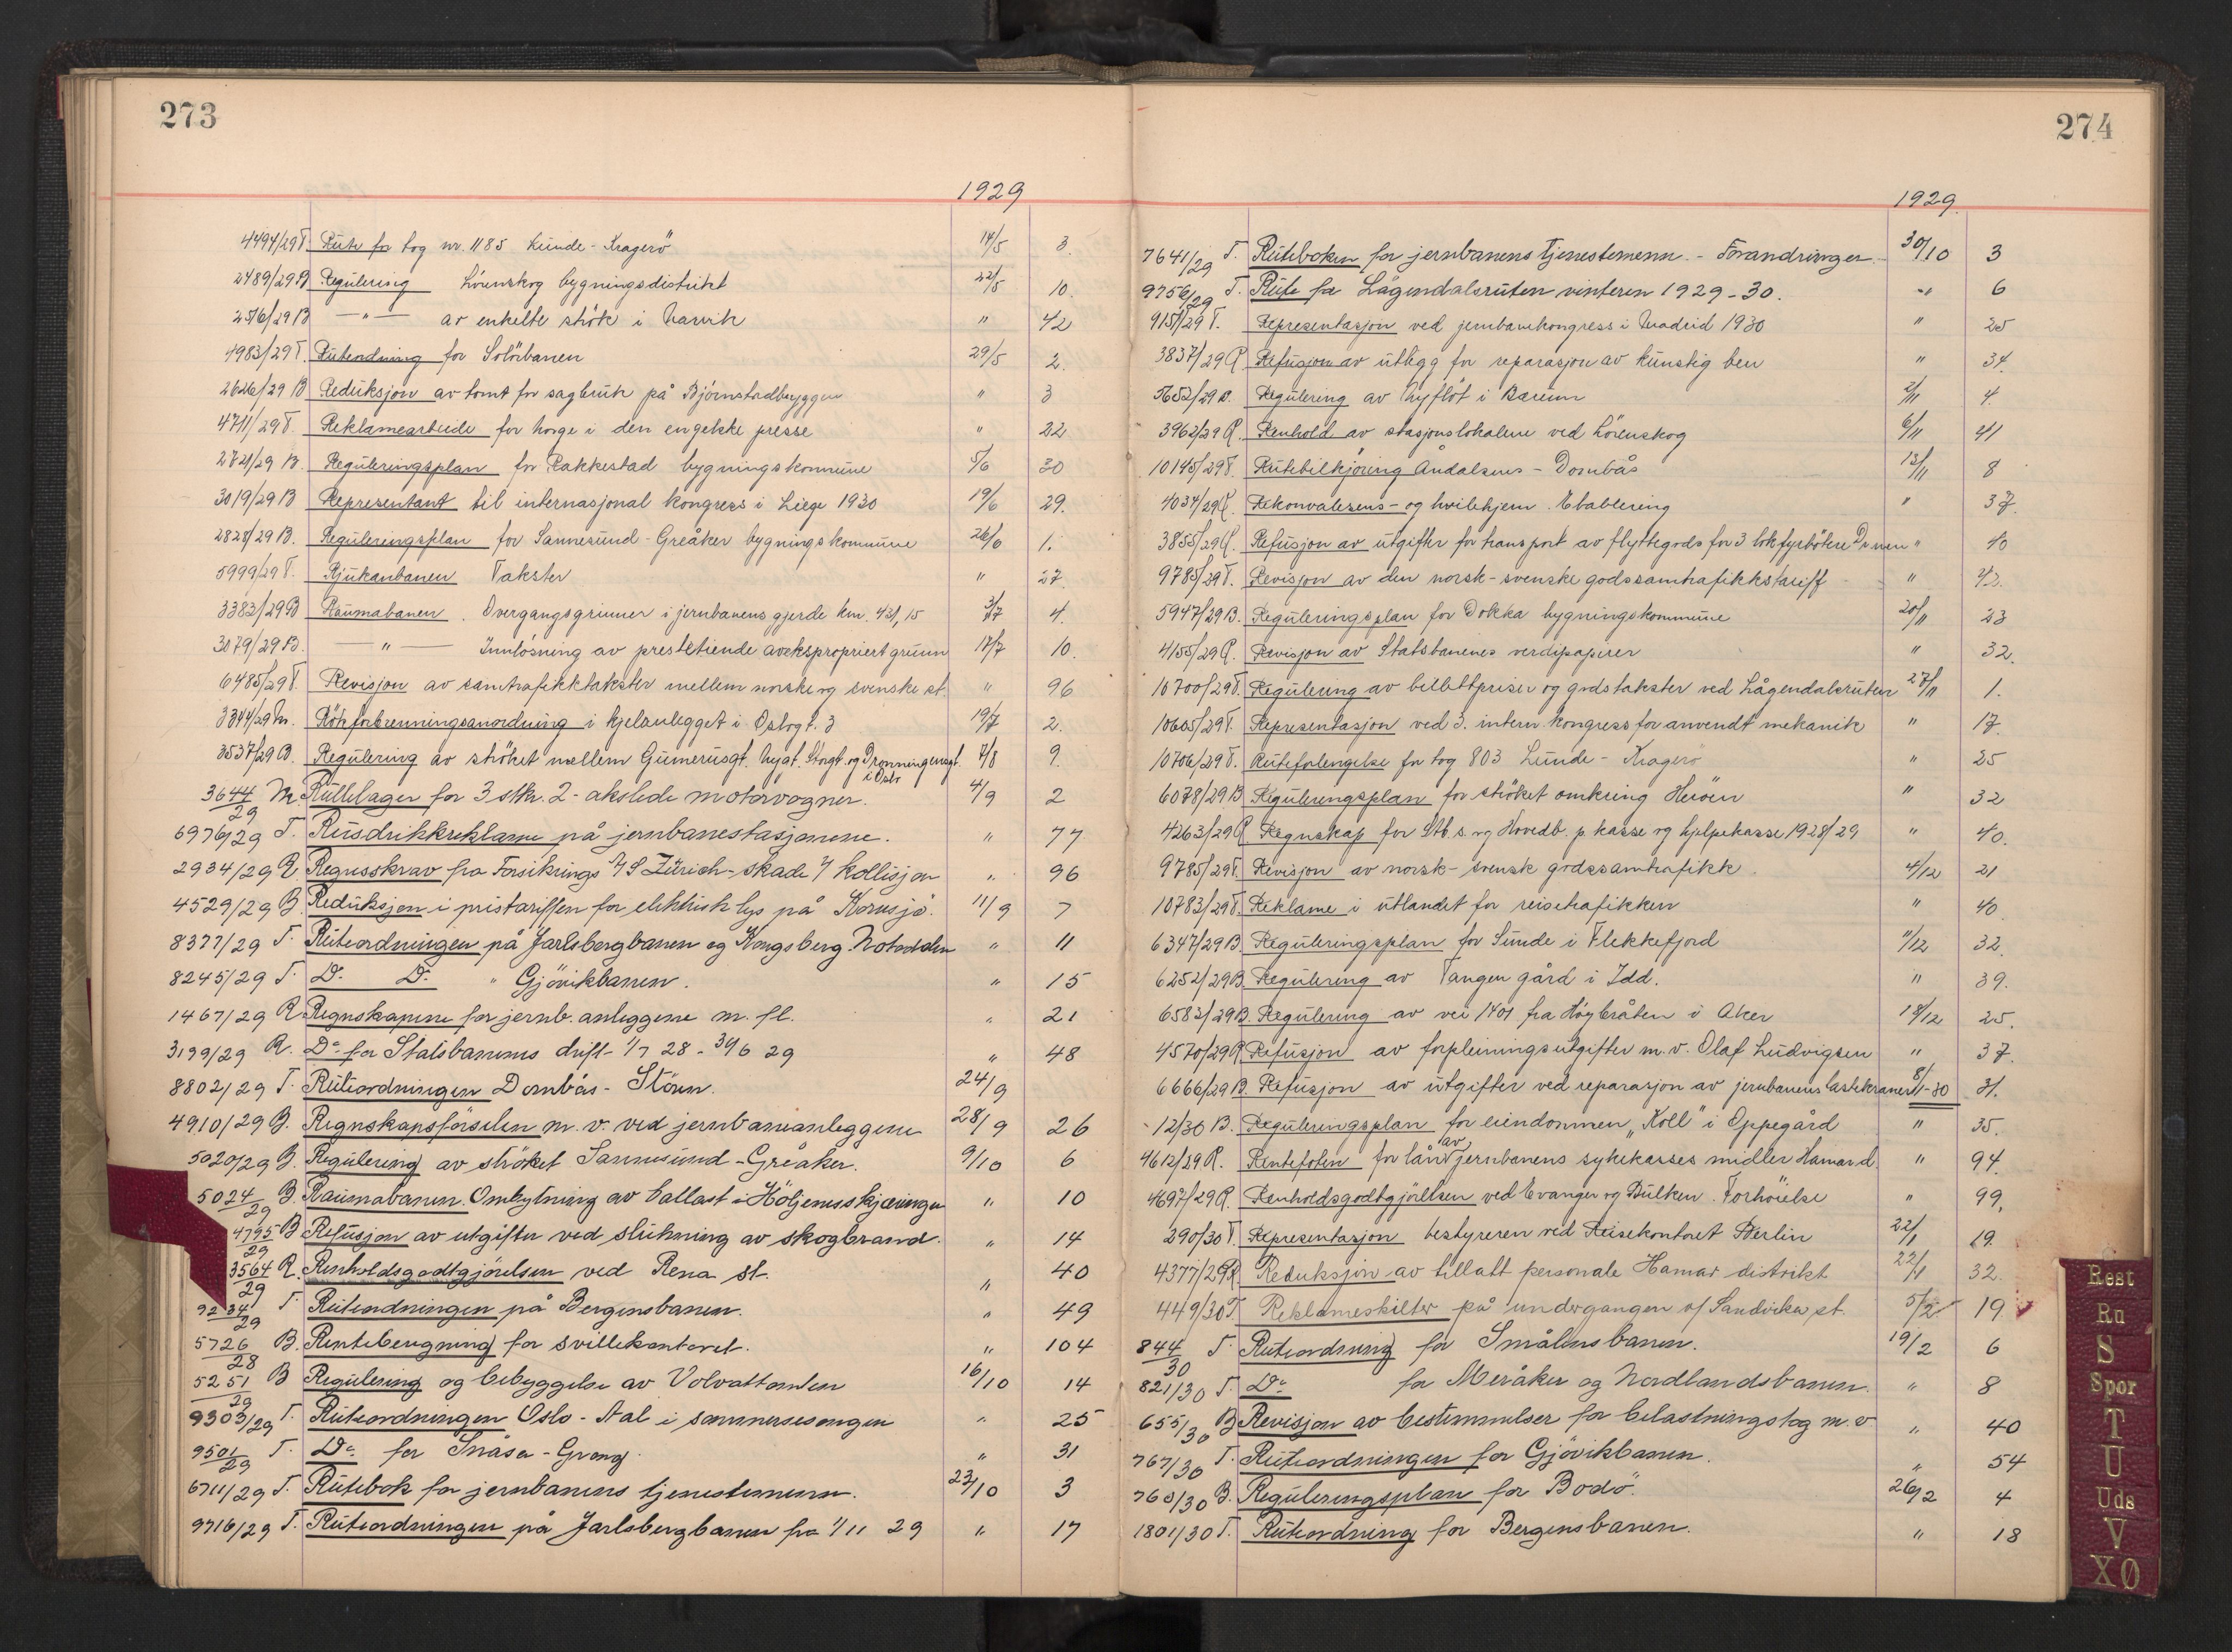 273
1929
4494/29 T. Rute for tog nr. 1185 Lunde - Kragerö 14/5 3.
2489/29 B Regulering Lörenskog bygningsdistrikt 22/5 10.
2516/29 B —"— av enkelte strök i Narvik " 42
4983/29 T. Ruteordning for Solörbanen 29/5 2.
2626/29 B Reduksjon av tomt for sagbruk på Björnstadbryggen " 3
4711/29 T. Reklamearbeide for Norge i den engelske presse " 22
2721/29 B. Reguleringsplan for Rakkestad bygningskommune 5/6 30
3019/29 B Representant til internasjonal kongress i Liege 1930 19/6 29.
2828/29 B. Reguleringsplan for Sannesund - Greåker bygningskommune 26/6 1.
5999/29 T. Rjukanbanen Takster " 27
3383/29 B Raumabanen. Overgangsgrinner i jernbanens gjerde km. 431,15 3/7 4.
3079/29 B. —"— Innlösning av prestetiende av ekspropriert grunn 17/7 10.
6485/29 T. Revisjon av samtrafikktakster mellem norske og svenske st. " 96
3344/29 M. Rökforbrenningsanordning i kjelanlegget i Oslo gt. 3 19/7 2.
3537/29 B. Regulering av ströket mellem Gunerusgt. Nygt. Storgt. og Dronningensgt. i Oslo 7/8 9.
3644/29 M. Rullelager for 3 stk. 2-akslede motorvogner. 4/9 2
6976/29 T. Rusdrikkreklame på jernbanestasjonene. " 77
2934/29 R. Regresskrav fra Forsikrings A/S Zürich - skade v/ kollisjon " 96
4529/29 B. Reduksjon i pristariffen for elektrisk lys på Kornsjö. 11/9 7
8377/29 T. Ruteordningen på Jarlsbergbanen og Kongsberg Notodden " 11
8245/29 T Do. Do. " Gjövikbanen. " 15
1467/29 R Regnskapene for jernb. anleggene m. fl. " 21
3199/29 R. Do for Statsbanenes drift - 1/7 28 - 30/6 29 " 48
8802/29 T. Ruteordningen Dombås - Stören. 24/9
4910/29 B. Regnskapsförselen m. v. ved jernbaneanleggene 28/9 26
5020/29 B. Regulering av ströket Sannesund - Greåker. 9/10 6
5024/29 B. Raumabanen. Ombytning av ballast i Höljenesskjæringen " 10
4795/29 B Refusjon av utgifter ved slukning av skogbrand. " 14
3564/29 R. Renholdsgodtgjörelsen ved Rena st. " 40
9234/29 T Ruteordningen på Bergensbanen. " 49
5726/28 B. Renteberegning for svillekontoret. " 104
5251/29 B Regulering og bebyggelse av Volvattomten 16/10 14
9303/29 T. Ruteordningen Oslo - Aal i sommersesongen " 25
9501/29 T. Do. for Snåsa - Grong. " 31
6711/29 T. Rutebok for jernbanens tjenestemenn. 23/10 3
9716/29 T. Ruteordningen på Jarlsbergbanen fra 1/11 29 " 17
274
1929.
7641/29 T. Ruteboken for jernbanens tjenestemenn. - Forandringer. 30/10 3
9756/29 T. Rute for Lågendalsruten vinteren 1929-30. " 6
9151/29 T. Representasjon ved jernbanekongress i Madrid 1930 " 25
3837/29 R Refusjon av utlegg for reparasjon av kunstig ben " 34.
5652/29 B. Regulering av Nyflöt i Bærum 2/11 4.
3962/29 R. Renhold av stasjonslokalene ved Lörenskog 6/11 41
10145/29 T. Rutebilkjöring Åndalsnes - Dombås 13/11 8
4034/29 R. Rekonvalesens- og hvilehjem. Etablering " 37.
3855/29 R. Refusjon av utgifter for transport av flyttegods for 3 lokfyrbötere Dr.men " 40
9785/29 T. Revisjon av den norsk-svenske godssamtrafikkstariff " 42.
5947/29 B. Reguleringsplan for Dokka bygningskommune 20/11 23
4155/29 R. Revisjon av Statsbanenes verdipapirer " 32.
10700/29 T. Regulering av billettpriser og godstakster ved Lågendalsruten 27/11 1.
10605/29 T. Representasjon ved 3. intern. kongress for anvendt mekanik " 17.
10706/29 T. Ruteforlengelse for tog 803 Lunde - Kragerö " 25
6078/29 B Reguleringsplan for ströket omkring Heröen " 32
4263/29 R. Regnskap for Stb.s. og Hovedb. p. kasse og hjelpekasse 1928/29 " 40.
9785/29 T. Revisjon av norsk-svensk godssamtrafikk. 4/12 21
10783/29 T. Reklame i utlandet for reisetrafikken " 40.
6347/29 B Reguleringsplan for Sunde i Flekkefjord 11/12 32.
6252/29 B. Regulering av Tangen gård i Idd. " 39.
6582/29 B. Regulering av vei 1401 fra Höybråten i Aker 18/12 25.
4570/29 R Refusjon av forpleiningsutgifter m. v. Olaf Ludvigsen " 37.
6666/29 B. Refusjon av utgifter ved reparasjon av jernbanens lastekraner 8/1-30 31.
12/30 B. Reguleringsplan for eiendommen "Koll" i Oppegård " 35.
4612/29 R. Rentefoten for lån av jernbanens sykekasses midler Hamar d. " 94.
4697/29 R. Renholdsgodtgjörelsen ved Evanger og Bulken. Forhöielse " 99.
290/30 T. Representasjon bestyreren ved Reisekontoret Berlin 22/1 19.
4377/29 R. Reduksjon av tillatt personale Hamar distrikt 22/1 32.
449/30 T Reklameskilter på undergangen v/ Sandvika st. 5/2 19
844/30 T. Ruteordning for Smålensbanen. 19/2 6
821/30 T. Do. for Meråker og Nordlandsbanen. " 8
655/30 B Revisjon av bestemmelser for belastningstog m. v " 40
767/30 T. Ruteordningen for Gjövikbanen. " 54
760/30 B. Reguleringsplan for Bodö. 26/2 4
1801/30 T. Ruteordning for Bergensbanen. " 18
Rest
Ru
S
Spor
T
U
Uds
V
XØ